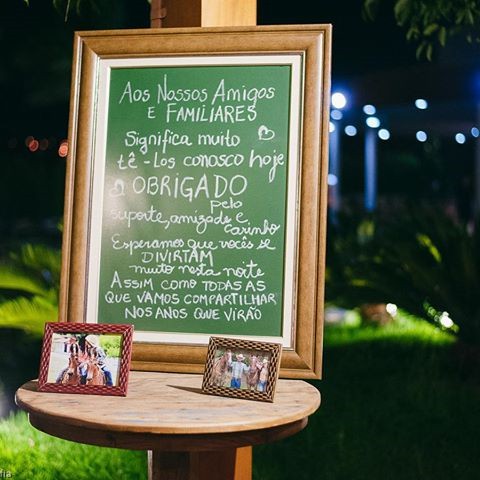 Aos Nossos Amigos
E FAMILIARES
Significa muito
tê-los conosco hoje
OBRIGADO
pelo
suporte, amizade e,
carinho
Esperamos que vocês se
DIVIRTAM
muito nesta noite
ASSIM COMO TODAS AS
QUE VAMOS COMPARTILHAR
NOS ANOS QUE VIRÃO